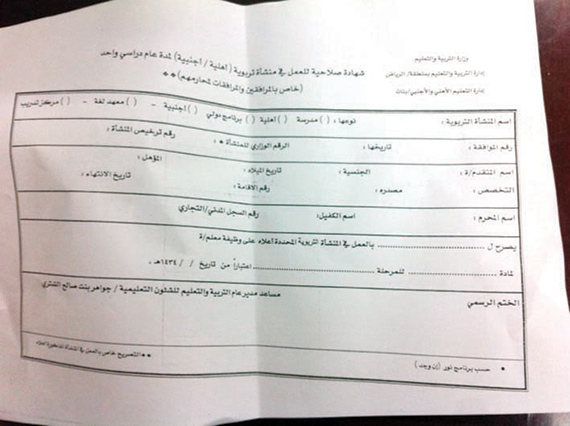 وزارة التربية والتعليم
إدارة التربية والتعليم بمنطقة/ الرياض
إدارة التعليم الأهلي والأجنبي/بنات
شهادة صلاحية للعمل في منشأة تربوية (أهلية / أجنبية) لمدة عام دراسي واحد
(خاص بالمرافقين والمرافقات لمحارمهم)**
اسم المنشأة التربوية : نوعها : ( ) مدرسة ( ) أهلية ( ) برنامج دولي ( ) أجنبية - ( ) معهد لغة - ( ) مركز تدريب
رقم الموافقة : تاريخها : الرقم الوزاري للمنشأة * : رقم ترخيص المنشأة :
اسم المتقدم/ة : الجنسية : تاريخ الميلاد : المؤهل :
التخصص : مصدره : رقم الاقامة : تاريخ الانتهاء :
اسم المحرم : اسم الكفيل: رقم السجل المدني/التجاري
يصرح ل ........................ بالعمل في المنشأة التربوية المحددة أعلاه على وظيفة معلم/ة
لمادة .................. للمرحلة ........................ اعتباراً من تاريخ / / ١٤٣٤هـ .
الختم الرسمي
مساعد مدير عام التربية والتعليم للشئون التعليمية / جواهر بنت صالح الشثري
* حسب برنامج نور (إن وجد )
** التصريح خاص بالعمل في المنشأة المذكورة أعلاه